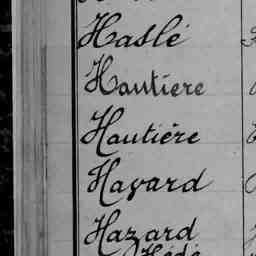 Haslé
Hautiere
Hautière
Hayard
Hazard
Hédé